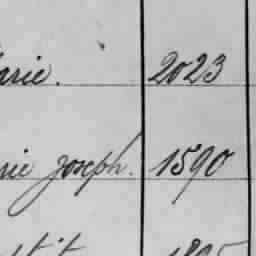 arie. 2023
rie joseph. 1590